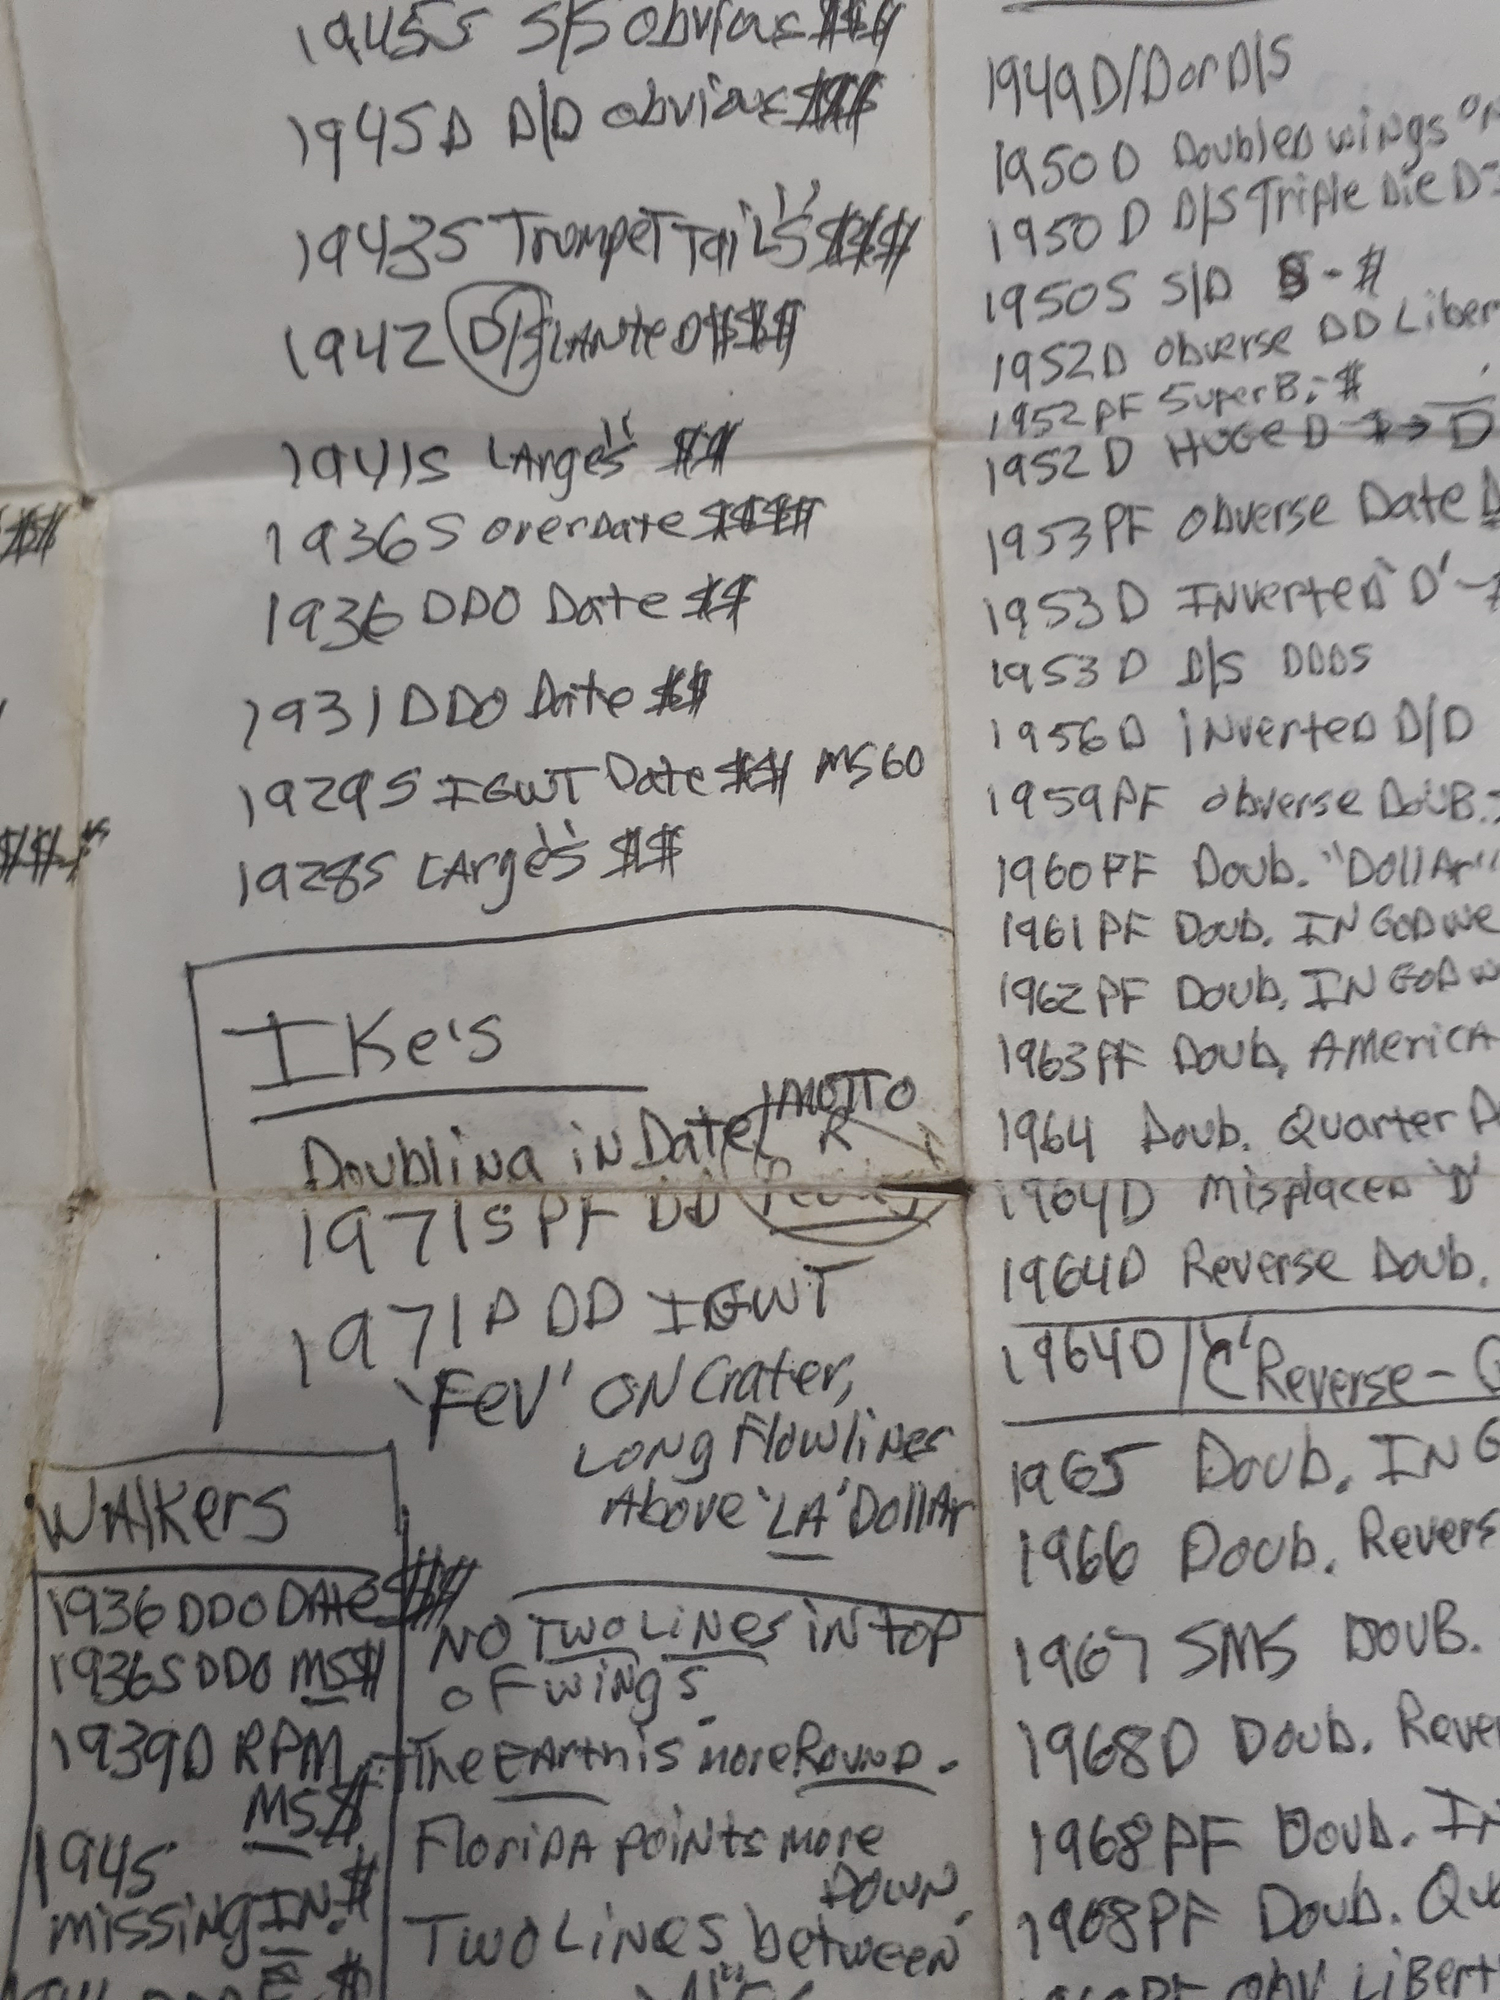 1945S S/S Obvious $$$
1945 D D/D Obvious $$$
1943S Trumpet Tail 'S' $$$$
1942 D/S SLANTED $$$$
1941S LArge 'S' $$
1936 S overDate $$$$
1936 DDO Date $$
1931 DDO Date $$
1929S IGWT Date $$$ MS60
1928S LArge 'S' $$
IKe's
Doubling iN Date/MOTTO
1971S PF DD
1971P DD IGWT
'FeV' ON Crater,
LONg Flowlines
Above 'LA' DollAr
NO TWO LiNes iN top
of wings.
The EArth is more ROUND.
FloriDA poiNts more
DOWN.
TWO LiNes between
WAlKers
1936 DDO DAte $$$
1936S DDO MS$
1939D RPM
MS$
1945
missing IN. $
1949 D/D or D/S
1950 D Doubled wings on
1950 D D/S Triple Die D
1950S S/D - $
1952D obverse DD Liber
1952 PF Super B. - $
1952 D HUGe D → D
1953 PF obverse Date
1953 D INverteD 'D' -
1953 D D/S DDOS
1956D iNverteD D/D
1959 PF obverse DOUB.
1960 PF Doub. "DollAr"
1961 PF Doub. IN GOD We
1962 PF Doub. IN GOD W
1963 PF Doub, AmericA
1964 Doub. Quarter D
1964D MisplaceD 'D'
1964D Reverse Doub.
1964D/'C' Reverse -
1965 Doub. IN G
1966 Doub. Revers
1967 SMS DOUB.
1968D Doub. Rever
1968 PF Doub. IN
1968 PF Doub. Qu
Obv. LiBert